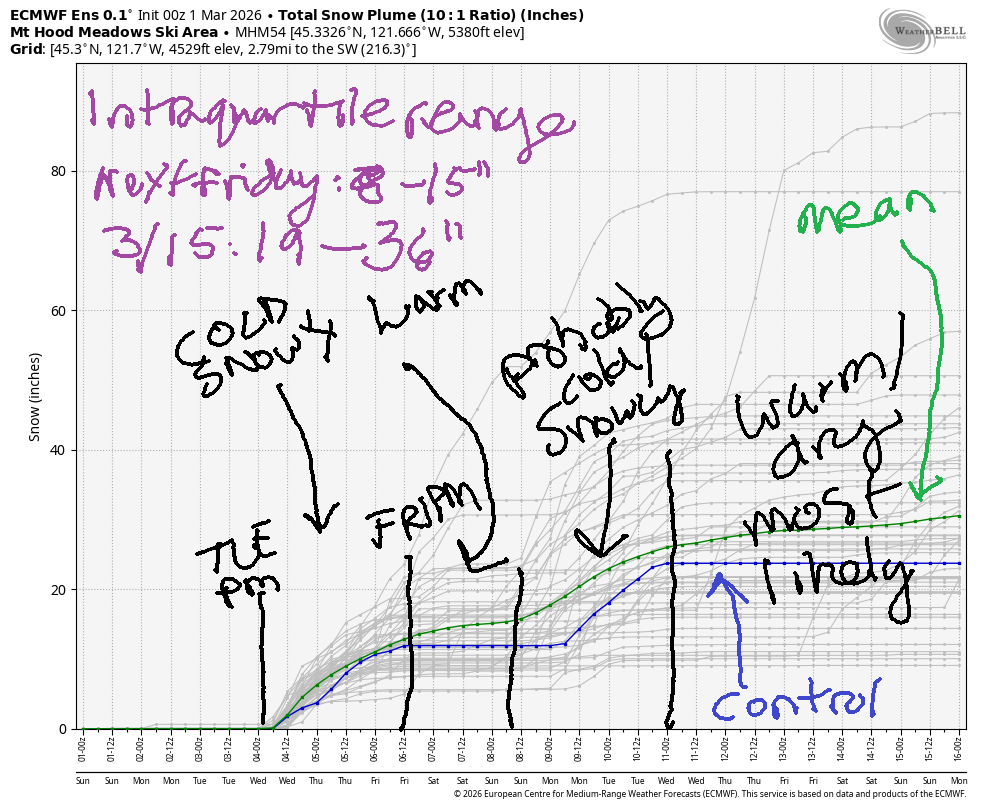 ECMWF Ens 0.1° Init 00z 1 Mar 2026 • Total Snow Plume (10:1 Ratio) (Inches)
Mt Hood Meadows Ski Area • MHM54 [45.3326°N, 121.666°W, 5380ft elev]
Grid: [45.3°N, 121.7°W, 4529ft elev, 2.79mi to the SW (216.3)°]
WeatherBELL
Intraquartile range
Next friday: 8-15"
3/15: 19-36"
mean
COLD
SNOW
warm
probably
cold/
snowy
warm/
dry
most
likely
TUE
pm
FRI PM
control
Snow (inches)
80
60
40
20
0
01-00z 01-12z 02-00z 02-12z 03-00z 03-12z 04-00z 04-12z 05-00z 05-12z 06-00z 06-12z 07-00z 07-12z 08-00z 08-12z 09-00z 09-12z 10-00z 10-12z 11-00z 11-12z 12-00z 12-12z 13-00z 13-12z 14-00z 14-12z 15-00z 15-12z 16-00z
Sun Sun Mon Mon Tue Tue Wed Wed Thu Thu Fri Fri Sat Sat Sun Sun Mon Mon Tue Tue Wed Wed Thu Thu Fri Fri Sat Sat Sun Sun Mon
© 2026 European Centre for Medium-Range Weather Forecasts (ECMWF). This service is based on data and products of the ECMWF.